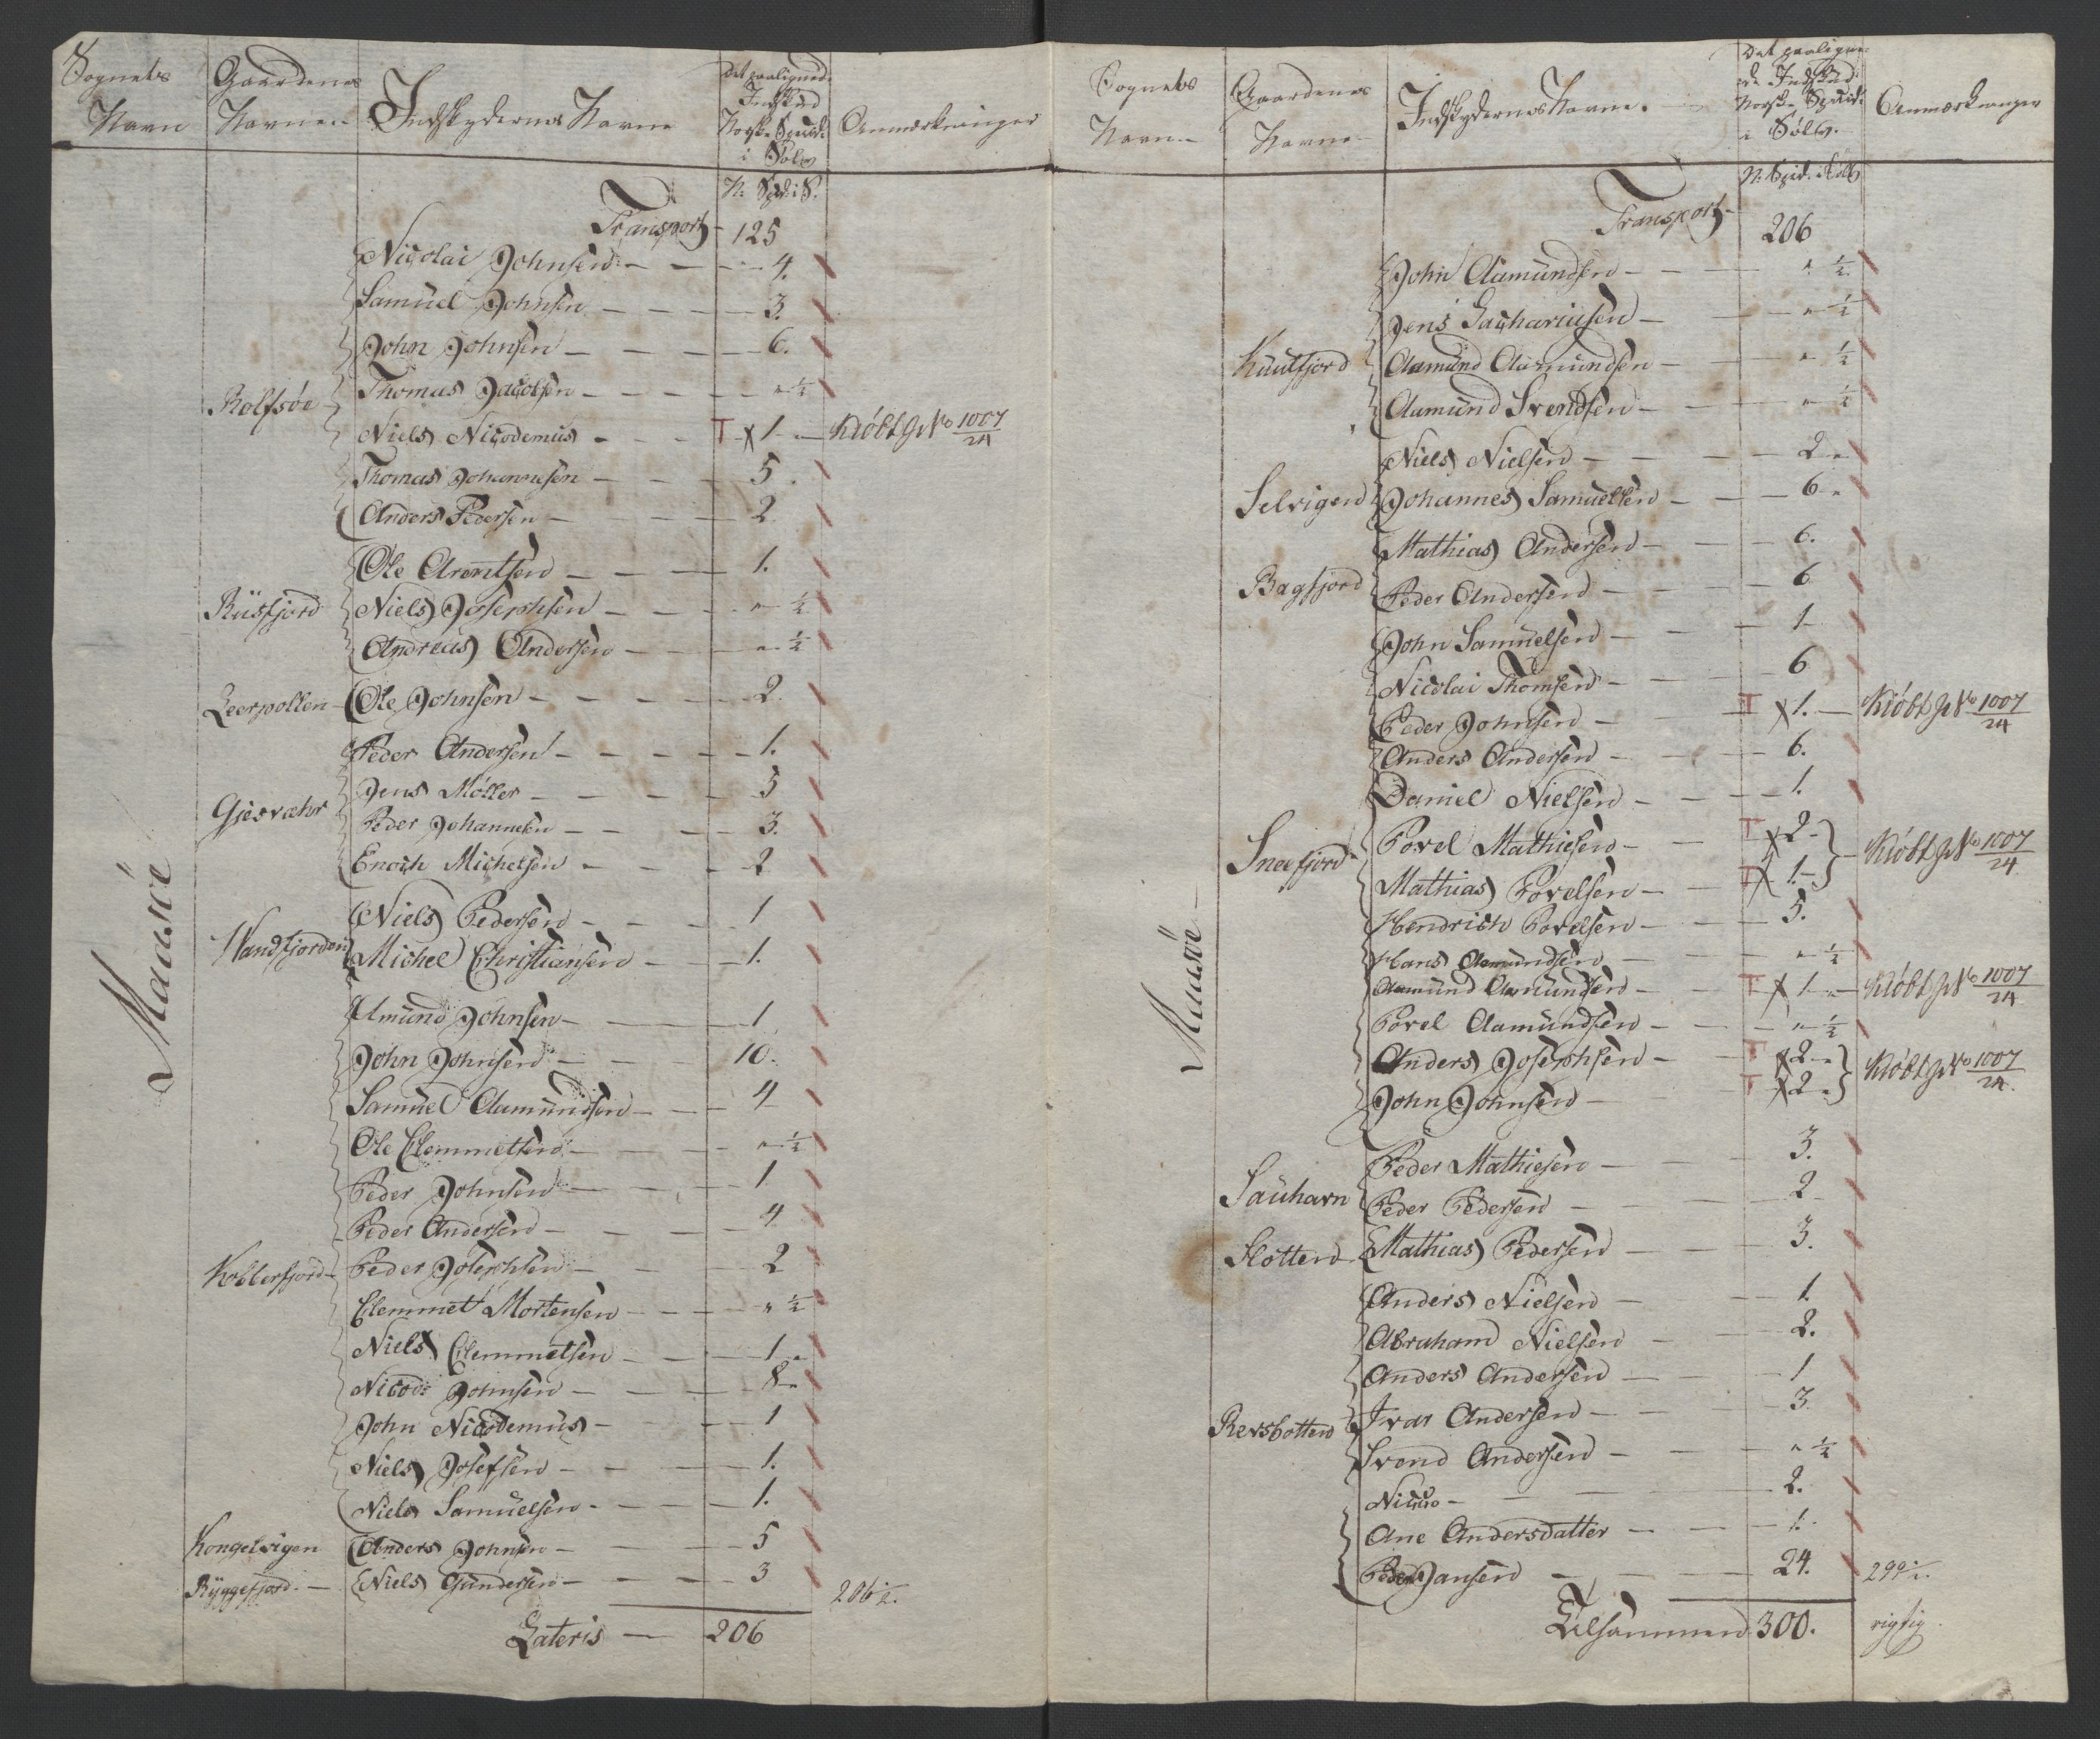 Sognets Navn | Gaardenes Navne | Indskydernes Navne | Det paalignede Indskud Norske Specid. i Sølv | Anmærkninger
N. Spd. i S.
Transport - 125
Maasöe
Nicolai Johnsen - 4.
Samuel Johnsen - 3.
John Johnsen - 6.
Rolfsöe - Thomas Jacobsen - " ½
Niels Nicodemus - T x 1 - Kiöbt J No 1007/24
Thomas Johannesen - 5.
Anders Pedersen - 2
Ole Arentsen - 1.
Rüsfjord Niels Josephsen - " ½
Andreas Andersen - " ½
Leerpollen - Ole Johnsen - 2.
Peder Andersen - 1.
Jens Möller - 5
Giesvæhr Peder Johannesen - 3.
Enoch Michelsen - 2
Niels Pedersen - 1
Wandfjorden Michel Christiansen - 1.
Amund Johnsen - 1
John Johnsen - 10.
Samuel Aamundsen - 4
Ole Clemmetsen - " ½
Peder Johnsen - 1
Peder Andersen - 4
Kobberfjord - Peder Josephsen - 2
Clemmet Mortensen - " ½
Niels Clemmetsen - 1 "
Nicod: Johnsen - 8 "
John Nicodemus - 1
Niels Josefsen - 1.
Niels Samuelsen - 1.
Kongelvigen Anders Johnsen - 5
Ryggefjord. - Niels Gundersen - 3
206½.
Lateris - 206
Sognets Navn | Gaardenes Navne | Indskydernes Navne. | Det paalignede Indskud Norske Specid. i Sølv. | Anmærkninger
N. Spid. i Sölv
Transport - 206
Maasöe
John Aamundsen - " ½
Jens Zachariusen - " ½
Kuulfjord Aamund Aamundsen - " ½
Aamund Svendsen - " ½
Niels Nielsen - 2 "
Selvigen Johannes Samuelsen - 6 "
Mathias Andersen - 6.
Bagfjord Peder Andersen - 6
John Samuelsen - 1
Nicolai Thomsen - 6
Peder Johnsen - T x 1. - Kiöbt J No 1007/24
Anders Andersen - 6.
Daniel Nielsen - 1.
Sneefjord Povel Mathiesen - T x 2 -
Mathias Povelsen - T x 1. - Kiöbt J No 1007/24
Hendrich Povelsen - 5.
Hans Aamundsen - " ½
Aamund Aamundsen - T x 1 " Kiöbt J No 1007/24
Povel Aamundsen - " ½
Anders Josephsen - T x 2 "
John Johnsen - T x 2 " Kiöbt J No 1007/24
Peder Mathiesen - 3.
Sauhavn Peder Pedersen - 2
Slotten Mathias Pedersen - 3.
Anders Nielsen - 1.
Abraham Nielsen - 2.
Anders Andersen - 1
Revsbotten Ivar Andersen - 3
Svend Andersen - " ½
- 2.
Ane Andersdatter - 1.
Peder Jansen - 24.
299½.
Tilsammen 300.
rigtig